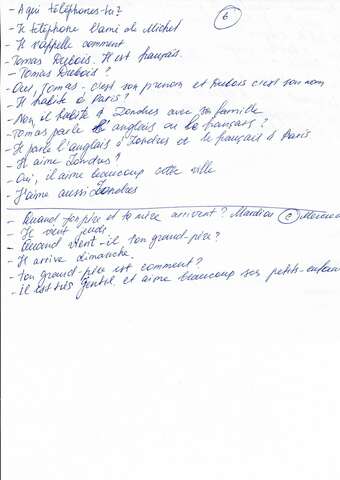 6
- A qui téléphones-tu?
- Je téléphone l'ami de Michel
- Il s'appelle comment
- Tomas Dubois. Il est français.
- Tomas Dubois?
- Oui, Tomas - c'est son prenom et Dubois c'est son nom
- Il habite à Paris?
- Non il habite à Londres avec sa famille
- Tomas parle l'anglais ou le français?
- Il parle l'anglais à Londres et le français à Paris
- Il aime Londres?
- Oui, il aime beaucoup cette ville
- J'aime aussi Londres
- Quand ton père et ta mère arrivent? Mardi ou Mercredi
- Il vient jeudi
- Quand vient-il ton grand-père?
- Il arrive dimanche.
- ton grand-père est comment?
- il est très gentil et aime beaucoup ses petits-enfants